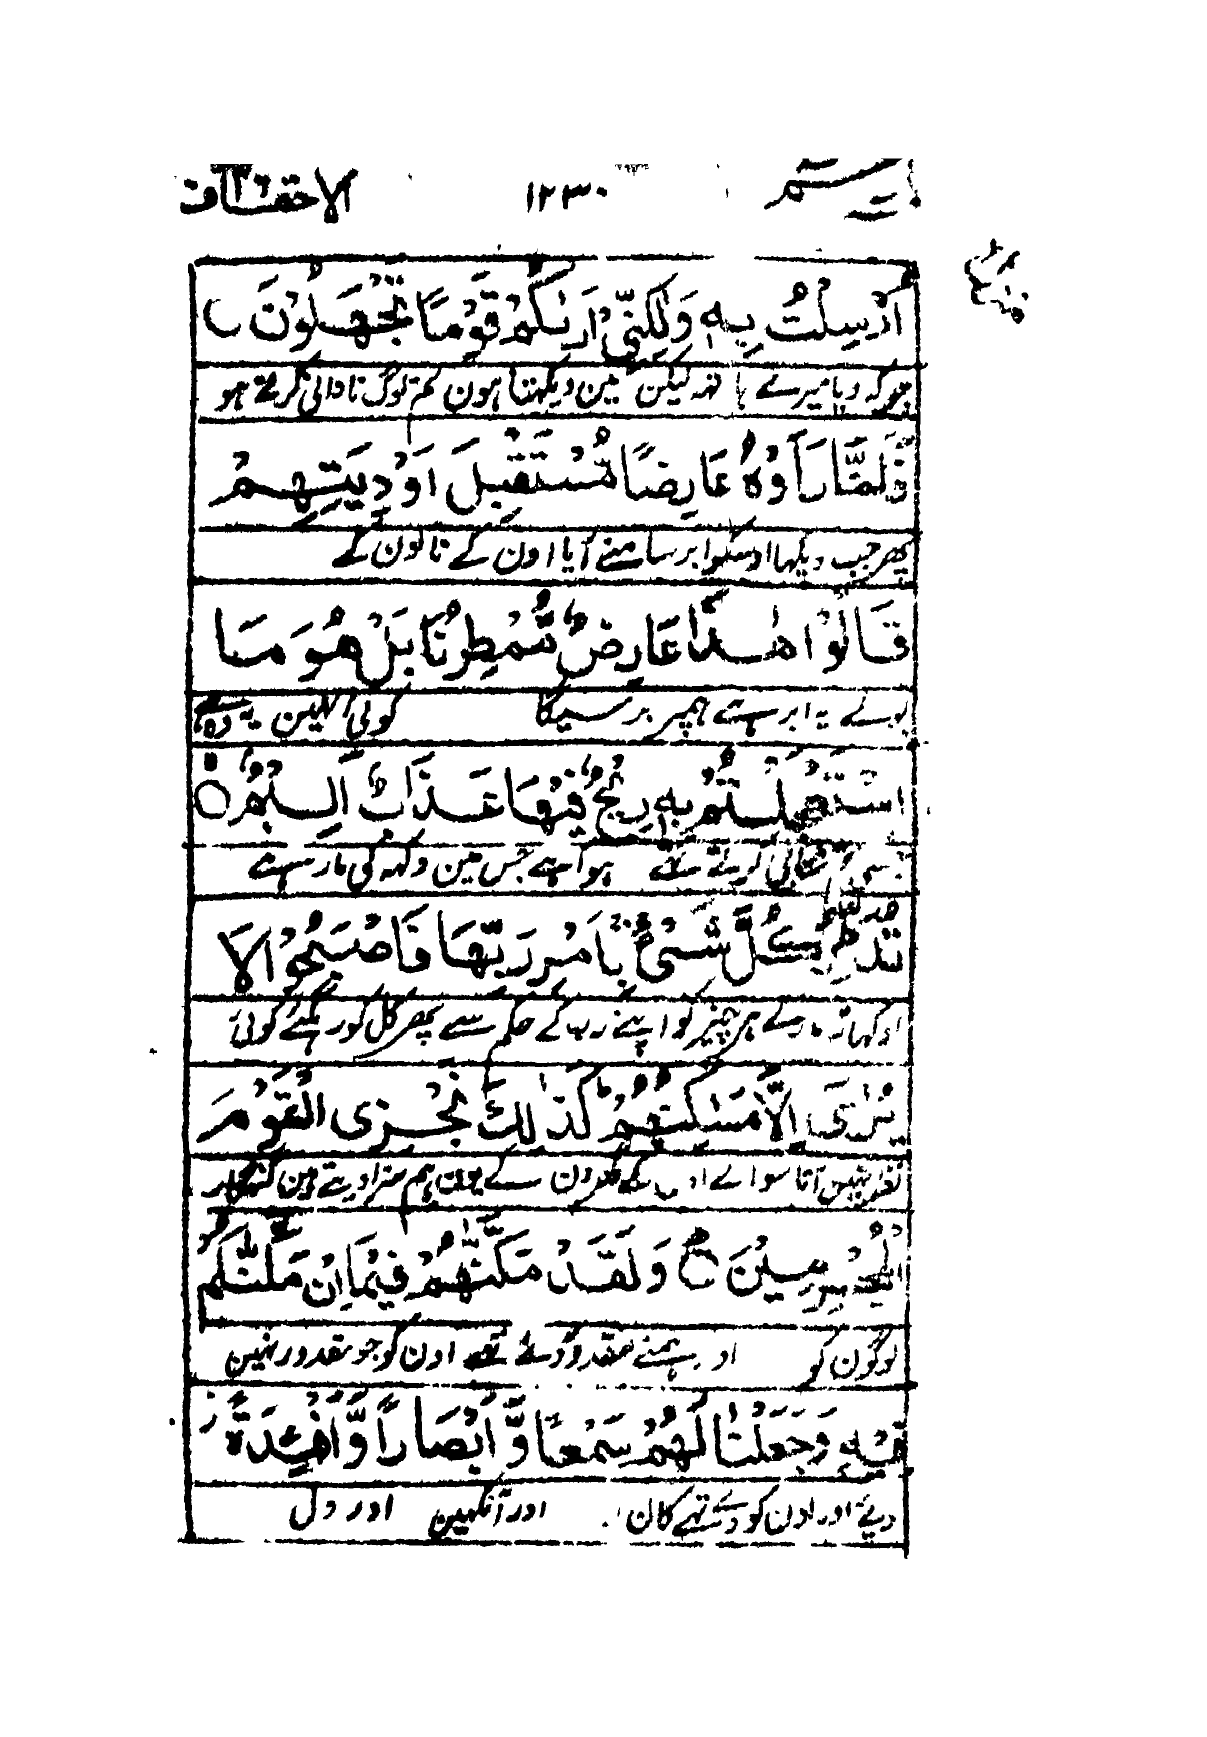 حٰم ١٢٣٠ الاحقاف ٤٦
اُرْسِلْتُ بِهٖ وَلٰكِنِّیْۤ اَرٰىكُمْ قَوْمًا تَجْهَلُوْنَ
جو کہ دیا میرے ہاتھ لیکن مین دیکھتا ہون تم لوگ نادانی کرتے ہو
فَلَمَّا رَاَوْهُ عَارِضًا مُّسْتَقْبِلَ اَوْدِیَتِهِمْ
پھر جب دیکھا اوسکو ابر سامنے آیا اون کے نالون کے
قَالُوْا هٰذَا عَارِضٌ مُّمْطِرُنَا بَلْ هُوَ مَا
بولے یہ ابر ہے ہمپر برسیگا کوئی نہین یہ وہ ہے
اسْتَعْجَلْتُمْ بِهٖ رِیْحٌ فِیْهَا عَذَابٌ اَلِیْمٌ
جسکی شتابی کرتے تھے ہوا ہے جس مین دکھ کی مار ہے
تُدَمِّرُ كُلَّ شَیْءٍ بِاَمْرِ رَبِّهَا فَاَصْبَحُوْا لَا
اوکھاڑ مارے ہر چیز کو اپنے رب کے حکم سے پھر کل کو رہگئے کوئی
یُرٰۤی اِلَّا مَسٰكِنُهُمْ كَذٰلِكَ نَجْزِی الْقَوْمَ
نظر نہین آتا سوائے اون کے گھرون کے یون ہم سزا دیتے ہین گنہگار
الْمُجْرِمِیْنَ وَلَقَدْ مَكَّنّٰهُمْ فِیْمَاۤ اِنْ مَّكَّنّٰكُمْ
لوگون کو اور ہمنے مقدور دئے تھے اون کو جو مقدور نہین
فِیْهِ وَجَعَلْنَا لَهُمْ سَمْعًا وَّ اَبْصَارًا وَّ اَفْـِٕدَةً
دیئے اور اون کو دئے تھے کان اور آنکھین اور دل